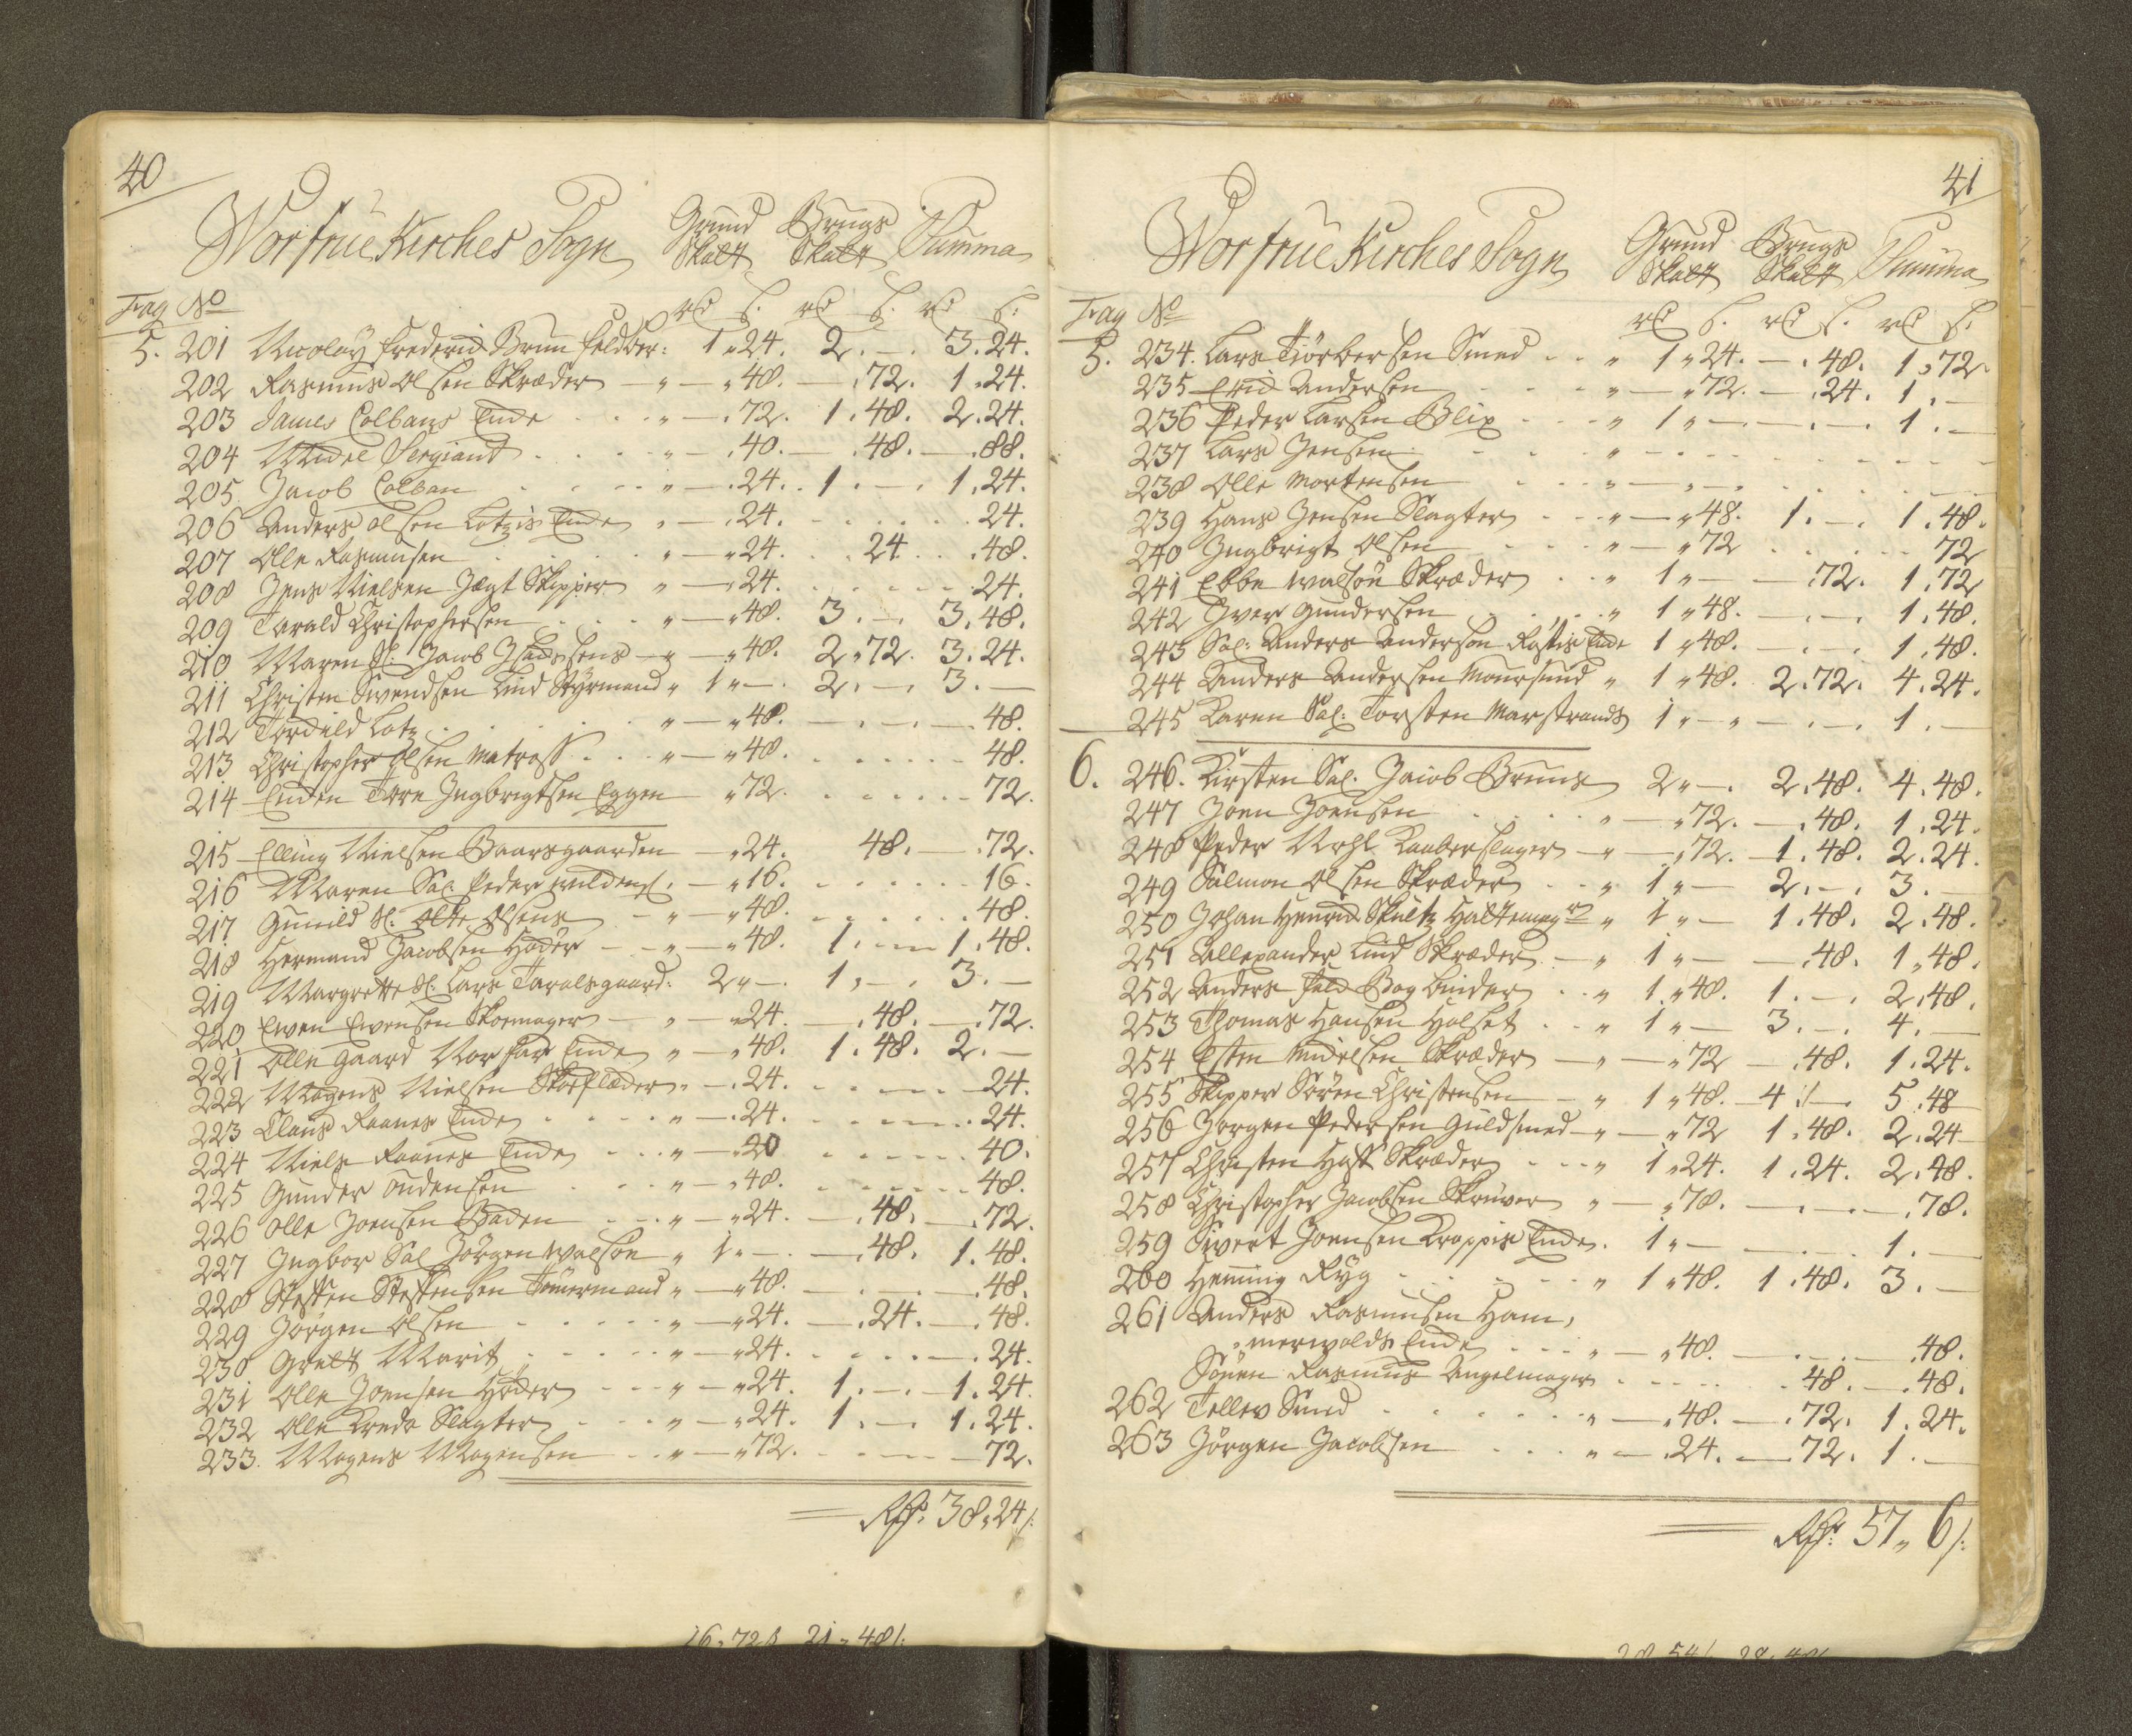 40
Worfrue Kirches Sogn Grund Skatt Brugs Skatt Summa
Frag No rd s. rd s. rd s.
5. 201 Nicolay Frederich Brun Feldber: 1 " 24. 2. —. 3. 24.
202 Rasmus Olsen Skræder — " — " 48. — . 72. 1. 24.
203 James Colbans Encke . . " — . 72. 1. 48. 2. 24.
204 Michel Sergiant . . . " — . 40. — . 48. — . 88.
205 Jacob Colban . . . . " — . 24. . 1. —. 1. 24.
206 Anders Olsen Lotzis Encke " — . 24. . . . . . 24.
207 Olle Rasmusen . . . . " — " 24. . . 24. . . 48.
208 Jens Nielsen Jagt Skipper " — " 24. . . . . . 24.
209 Tarald Christophersen . . . " — " 48. 3. —. 3. 48.
210 Maren Sl: Jacob Isachsens — " — " 48. 2. 72. 3. 24.
211 Christen Swendsen Lind Styrmand " 1 " —. 2. —. 3. —
212 Tordild Lotz . . . . . " — " 48. — . — . — 48.
213 Christopher Olsen Matross . . . " — " 48. . . . . . 48.
214 Encken Tore Ingbrigtsen Eggen " 72. . . . . . 72.
215 Elling Nielsen Baarsgaarden — " 24. 48. — . 72.
216 Maren Sal. Peder . — " 16. . . . . . 16.
217 Gunild Sl: Olle Olsens — " — " 48. . . . . . 48.
218 Hermand Jacobsen Höder — — " — " 48. 1. — — 1. 48.
219 Margrette Sl: Lars Taralsgaard: 2 " —. 1. —. 3. —
220 Ewen Ewensen Skoemager — " — " 24. — . 48. — . 72.
221 Olle Gaard Vor Far Encke " — " 48. 1. 48. 2. —
222 Mogens Nielsen Skoeflecker " — . 24. . . . — 24.
223 Claus Raanes Encke . . . . " — . 24. . . . . . 24.
224 Niels Raanes Encke . . . " — . 20 . . . . . 40.
225 Gunder Oudensen . . . " — " 48. . . . . . 48.
226 Olle Joensen Baden . . . " — " 24. — . 48. — . 72.
227 Ingbor Sal Jörgen Walsöe " 1 " —. — . 48. 1. 48.
228 Steffen Steffensen Tömermand " — " 48. — . — . — . 48.
229 Jörgen Olsen . . . . . " — " 24. — . 24. — . 48.
230 Grett Marit . . . . . " — " 24. . . . . — . 24.
231 Olle Joensen Höder . . . " — " 24. 1. —. 1. 24.
232 Olle Kreda Slagter . . . " — " 24. 1. —. 1. 24.
233. Mogens Mogensen . . " — " 72. . . . — 72.
Rdr: 38. 24 s:
16. 72 s 21. 48 s:
41
Worfrue Kirches Sogn Grund Skatt Brugs Skatt Summa
Frag No rd s. rd s. rd s.
5. 234. Lars Tiörbersen Smed . . " 1 " 24. — . 48. 1. 72
235 Erich Andersen . . . . " — " 72. — . 24. 1. —
236 Peder Larsen Blix . . . " 1 " —. — . — . 1. —
237 Lars Jensen . . . . " — . . . . . . —
238 Olle Mortensen . . . " — " — " . . . . —
239 Hans Jensen Slagter . . . " — " 48. 1. —. 1. 48.
240 Ingbrigt Olsen . . . . " — " 72 . . . . . 72
241 Ebbe Walsöe Skræder . . " 1 " — — . 72. 1. 72
242 Iver Gundersen . . . . " 1 " 48. — . — . 1. 48.
243 Sal: Anders Andersen Rostis Encke 1 " 48. — . — . 1. 48.
244 Anders Andersen Moursund " 1 " 48. 2. 72. 4. 24.
245 Karen Sal: Torsten Marstrands 1 " — " — . — . 1. —
6. 246. Kirsten Sal. Jacob Bruns 2 " —. 2. 48. 4. 48.
247 Joen Joensen . . . . . " — " 72. — . 48. 1. 24.
248 Peder Kaaberslager — " — " 72. — 1. 48. 2. 24.
249 Salmon Olsen Skræder . . " 1 " — 2. —. 3. —
250 Johan Henrich Skultz Hattemagr " 1 " — 1. 48. 2. 48.
251 Allexander Lind Skræder — " 1 " — — . 48. 1. 48.
252 Anders Feld Bogbinder . . " 1. " 48. 1. —. 2. 48.
253 Thomas Hansen Holset . . " 1 " — 3. —. 4. —
254 Esten Michelsen Skræder — " — " 72 — . 48. 1. 24.
255 Skipper Sören Christensen — " 1 " 48. — 4 :/—. 5. 48
256 Jorgen Pedersen Guldsmed — " — " 72 1. 48. 2. 24
257 Christen Hoff Skræder . . . " 1 " 24. 1. 24. 2. 48.
258 Christopher Jacobsen Skriver " — " 78. — . — . — . 78.
259 Sivert Joensen Kroppis Encke . 1 " — — . — . 1. —
260 Heming Ryg . . . . . . " 1 " 48. 1. 48. 3. —
261 Anders Rasmusen Ham,
" merwolds Encke . . . " — " 48. — . — . — . 48.
Sönen Rasmus Nagelmager . . . . . . 48. — . 48.
262 Tellev Sund . . . . . . " — " 48. — . 72. 1. 24.
263 Jörgen Jacobsen . . . . " — . 24. — 72. 1. —
Rdr: 57 " 6 s:
28. 54 s 28. 48 s